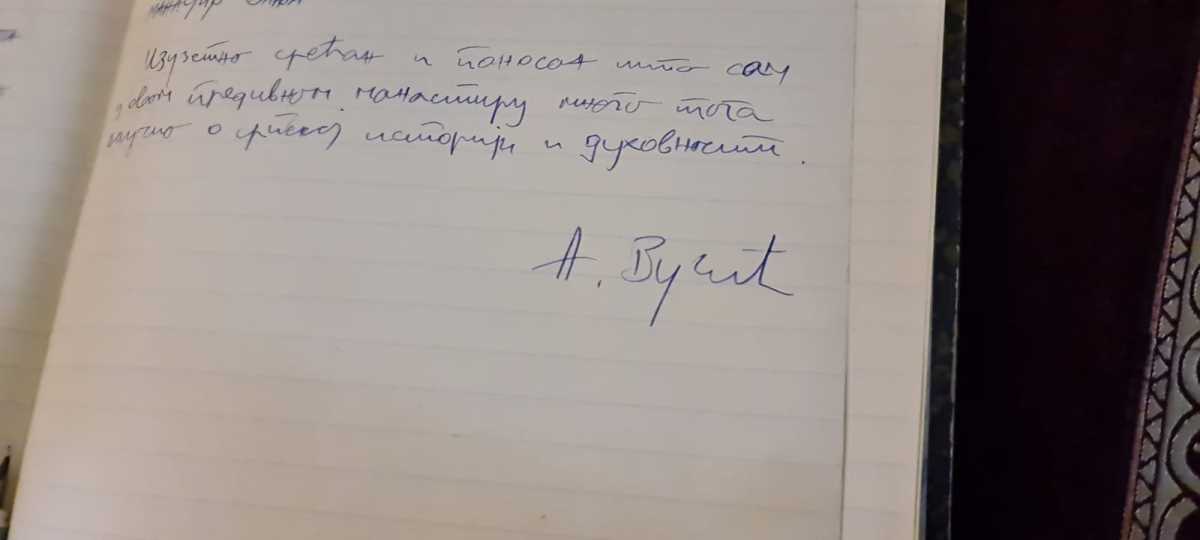 манастир
Изузетно срећан и поносан што сам
у овом предивном манастиру много тога
научио о српској историји и духовности.
А. Вучић